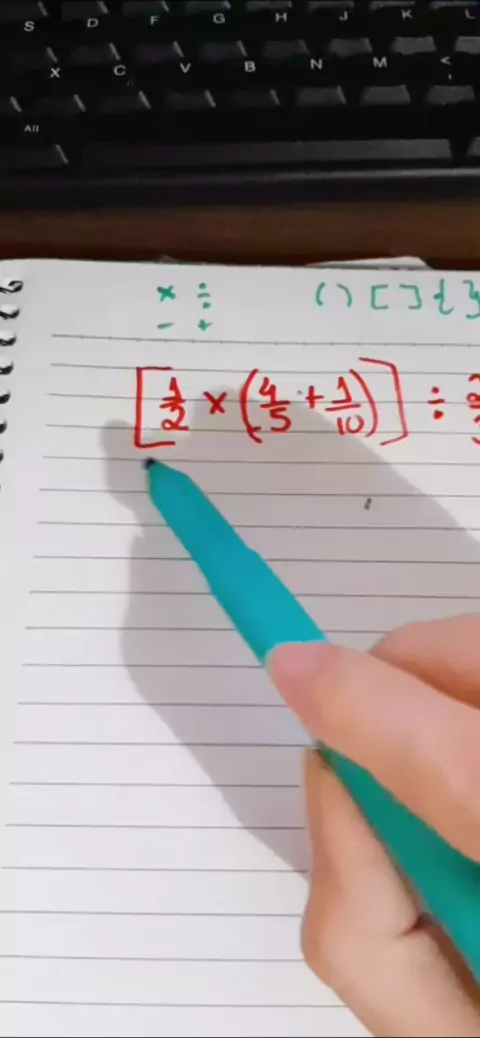 S D F G H J K L
X C V B N M < ,
All
× ÷ ( ) [ ] { }
- +
[1/2 × (4/5 + 1/10)] ÷ 2/3